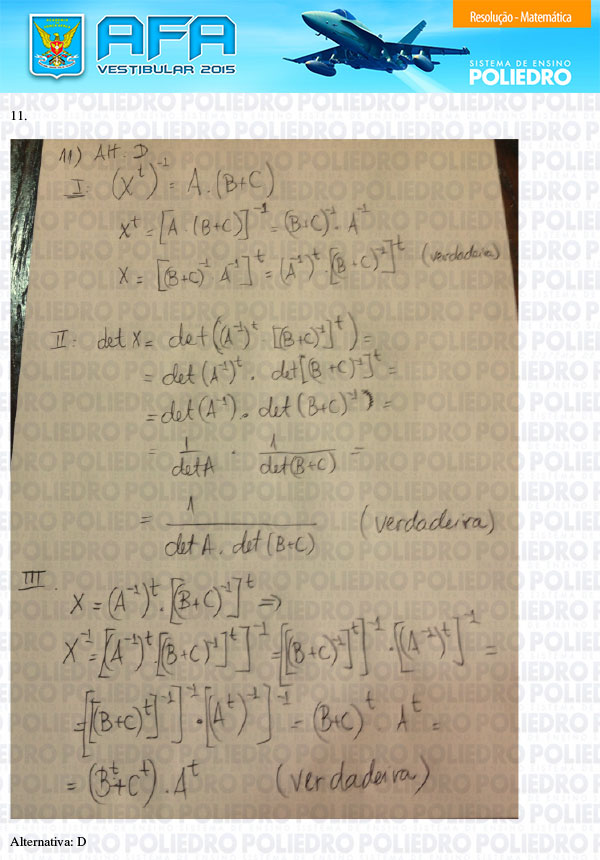 AFA
VESTIBULAR 2015
Resolução - Matemática
SISTEMA DE ENSINO
POLIEDRO
11.
11) Alt: D
I: (X^t)^-1 = A . (B+C)
X^t = [A . (B+C)]^-1 = (B+C)^-1 . A^-1
X = [(B+C)^-1 . A^-1]^t = (A^-1)^t . [(B+C)^-1]^t (verdadeira)
II: det X = det((A^-1)^t . [(B+C)^-1]^t) =
= det(A^-1)^t . det[(B+C)^-1]^t =
= det(A^-1) . det(B+C)^-1) =
= 1/detA . 1/det(B+C) =
= 1/detA . det(B+C) (verdadeira)
III.
X = (A^-1)^t . [(B+C)^-1]^t ⇒
X^-1 = [(A^-1)^t [(B+C)^-1]^t]^-1 = [[(B+C)^-1]^t]^-1 . [(A^-1)^t]^-1 =
= [[(B+C)^t]^-1]^-1 . [(A^t)^-1]^-1 = (B+C)^t . A^t =
= (B^t + C^t) . A^t (verdadeira)
Alternativa: D